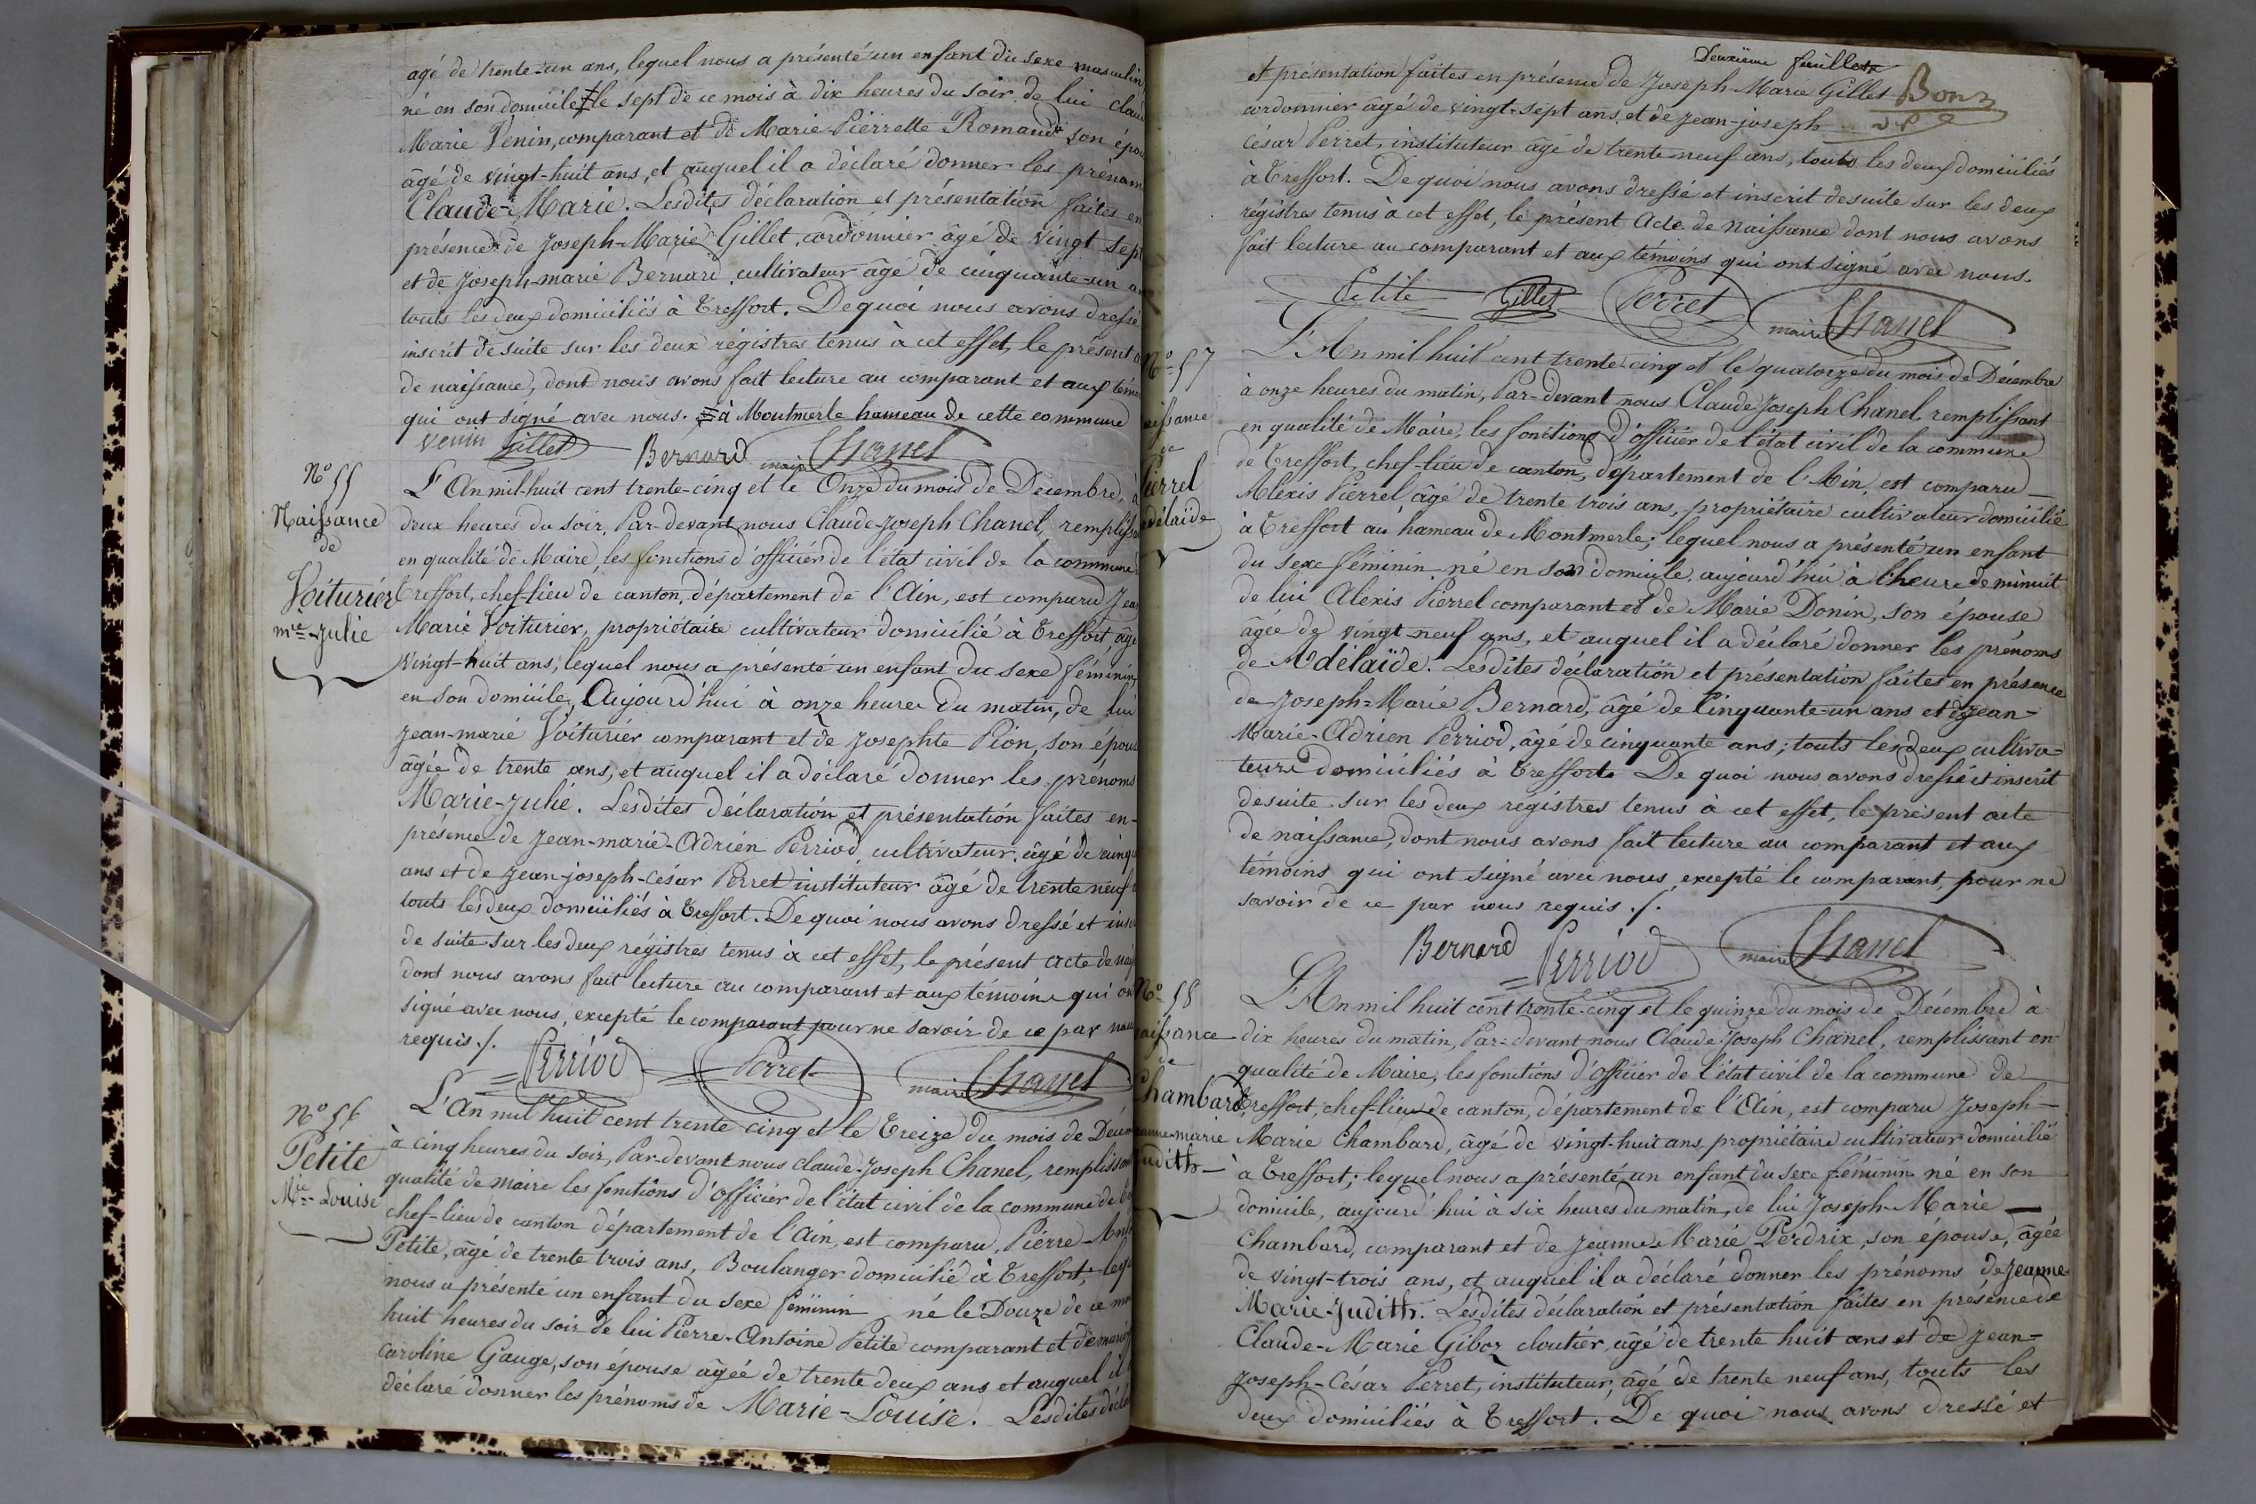 agé de trente-un ans, lequel nous a présenté un enfant du sexe masculin
né en son domicile ≠ le sept de ce mois à dix heures du soir de lui claude
Marie Venin, comparant et de Marie Pierrette Romand son épou
âgé de vingt-huit ans, et auquel il a déclaré donner les prénom
Claude-Marie. Lesdites déclaration et présentation faites en
présence de Joseph-Marie Gillet, cordonnier âgé de vingt sept
et de Joseph-marie Bernard cultivateur âgé de cinquante-un a
touts les deux domiciliés à Treffort. De quoi nous avons dressé
inscrit de suite sur les deux régistres tenus à cet effet, le présent a
de naissance, dont nous avons fait lecture au comparant et aux témo
qui ont signé avec nous. ≠ à Montmerle hameau de cette commune
Venin Gillet Bernard maire Chanel
N° 55
Naissance
de
Voiturier
mie Julie
L'An mil-huit cent trente-cinq et le Onze du mois de Décembre, à
deux heures du soir, Par-devant nous Claude-Joseph Chanel, remplissa
en qualité de Maire, les fonctions d'officier de l'état civil de la commune
Treffort, chef-lieu de canton, département de l'Ain, est comparu Jean
Marie Voiturier, propriétaire cultivateur domicilié à Treffort, âgé
vingt-huit ans, lequel nous a présenté un enfant du sexe féminin,
en son domicile, Aujourd'hui à onze heures du matin, de lui
Jean-marie Voiturier comparant et de Josephte Pion, son épous
âgée de trente ans, et auquel il a déclaré donner les prénoms
Marie-Julie. Lesdites déclaration et présentation faites en-
présence de Jean-marie-Adrien Perriod, cultivateur, âgé de cinqu
ans et de Jean-joseph-César Perret instituteur âgé de trente neuf
touts les deux domiciliés à Treffort. De quoi nous avons dressé et inscr
de suite sur les deux régistres tenus à cet effet, le présent acte de nais
dont nous avons fait lecture au comparant et aux témoins qui on
signé avec nous, excepté le comparant pour ne savoir de ce par nous
requis ./.
Perriod Perret maire Chanel
N° 56
Petite
Mie Louise
L'An mil huit cent trente cinq et le Treize du mois de Décem
à cinq heures du soir, Par-devant nous claude-Joseph Chanel, remplissant
qualité de maire les fonctions d'officier de l'état civil de la commune de Tr
chef-lieu de canton département de l'Ain, est comparu, Pierre-Anto
Petite, âgé de trente trois ans, Boulanger domicilié à Treffort, leq
nous a présenté un enfant du sexe féminin né le Douze de ce mo
huit heures du soir de lui Pierre-Antoine Petite comparant et de marie
Caroline Gauge, son épouse âgée de trente deux ans et auquel il
déclaré donner les prénoms de Marie-Louise. Lesdites décla
Deuxième feuillet
Bon
et présentation faites en présence de Joseph-Marie Gillet
cordonnier âgé de vingt-sept ans, et de jean-joseph
César Perret, instituteur âgé de trente neuf ans, touts les deux domiciliés
à Treffort. De quoi nous avons dressé et inscrit desuite sur les deux
régistres tenus à cet effet, le présent Acte de Naissance dont nous avons
fait lecture au comparant et aux témoins qui ont signé avec nous.
Petite Gillet Perret maire Chanel
N° 57
aissance
de
Pierrel
Adélaïde
L'An mil huit cent trente-cinq et le quatorze du mois de Décembre
à onze heures du matin, Par-devant nous Claude Joseph Chanel, remplissant
en qualité de Maire, les fonctions d'officier de l'état civil de la commune
de Treffort, chef-lieu de canton, département de l'Ain, est comparu
Alexis Pierrel, âgé de trente trois ans, propriétaire cultivateur domicilié
à Treffort au hameau de Montmerle; lequel nous a présenté un enfant
du sexe féminin né en son domicile, aujourd'hui à l'heure de minuit
de lui Alexis Pierrel comparant et de Marie Donin, son épouse
âgée de vingt neuf ans, et auquel il a déclaré donner les prénoms
de Adélaïde. Lesdites déclaration et présentation faites en présence
de Joseph-Marie Bernard, âgé de Cinquante-un ans et de jean-
Marie-Adrien Perriod, âgé de cinquante ans; touts les deux cultiva-
teurs domiciliés à Treffort. De quoi nous avons dressé et inscrit
desuite sur les deux régistres tenus à cet effet, le présent acte
de naissance, dont nous avons fait lecture au comparant et aux
témoins qui ont signé avec nous, excepté le comparant, pour ne
savoir de ce par nous requis ./.
Bernard Perriod maire Chanel
N° 58
aissance
de
Chambard
eanne-marie
Judith
L'An mil huit cent trente-cinq et le quinze du mois de Décembre à
dix heures du matin, Par-devant nous Claude Joseph Chanel, remplissant en
qualité de Maire, les fonctions d'officier de l'état civil de la commune de
Treffort, chef-lieu de canton, département de l'Ain, est comparu Joseph-
Marie Chambard, âgé de vingt-huit ans, propriétaire cultivateur domicilié
à Treffort; lequel nous a présenté un enfant du sexe féminin né en son
domicile, aujourd'hui à six heures du matin, de lui Joseph-Marie
Chambard, comparant et de Jeanne-Marie Perdrix, son épouse, âgée
de vingt-trois ans, et auquel il a déclaré donner les prénoms de Jeanne-
Marie-Judith. Lesdites déclaration et présentation faites en présence de
Claude-Marie Giboz cloutier, âgé de trente huit ans et de Jean-
Joseph-César Perret, instituteur, âgé de trente neuf ans, touts les
deux domiciliés à Treffort. De quoi nous avons dressé et